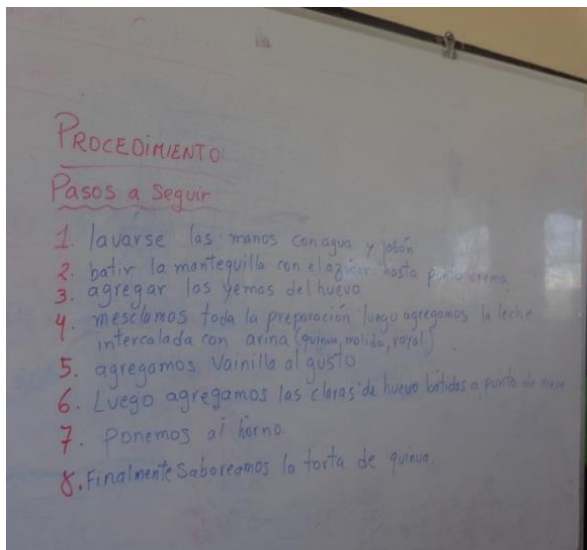 PROCEDIMIENTO
Pasos a Seguir
1. lavarse las manos con agua y jabón
2. batir la mantequilla con el azúcar hasta punto crema
3. agregar las yemas del huevo
4. mesclamos toda la preparación luego agregamos la leche
intercalada con arina (quinua, molida, royal)
5. agregamos Vainilla al gusto
6. Luego agregamos las claras de huevo batidas a punto de nieve
7. Ponemos al horno.
8. Finalmente Saboreamos la torta de quinua.